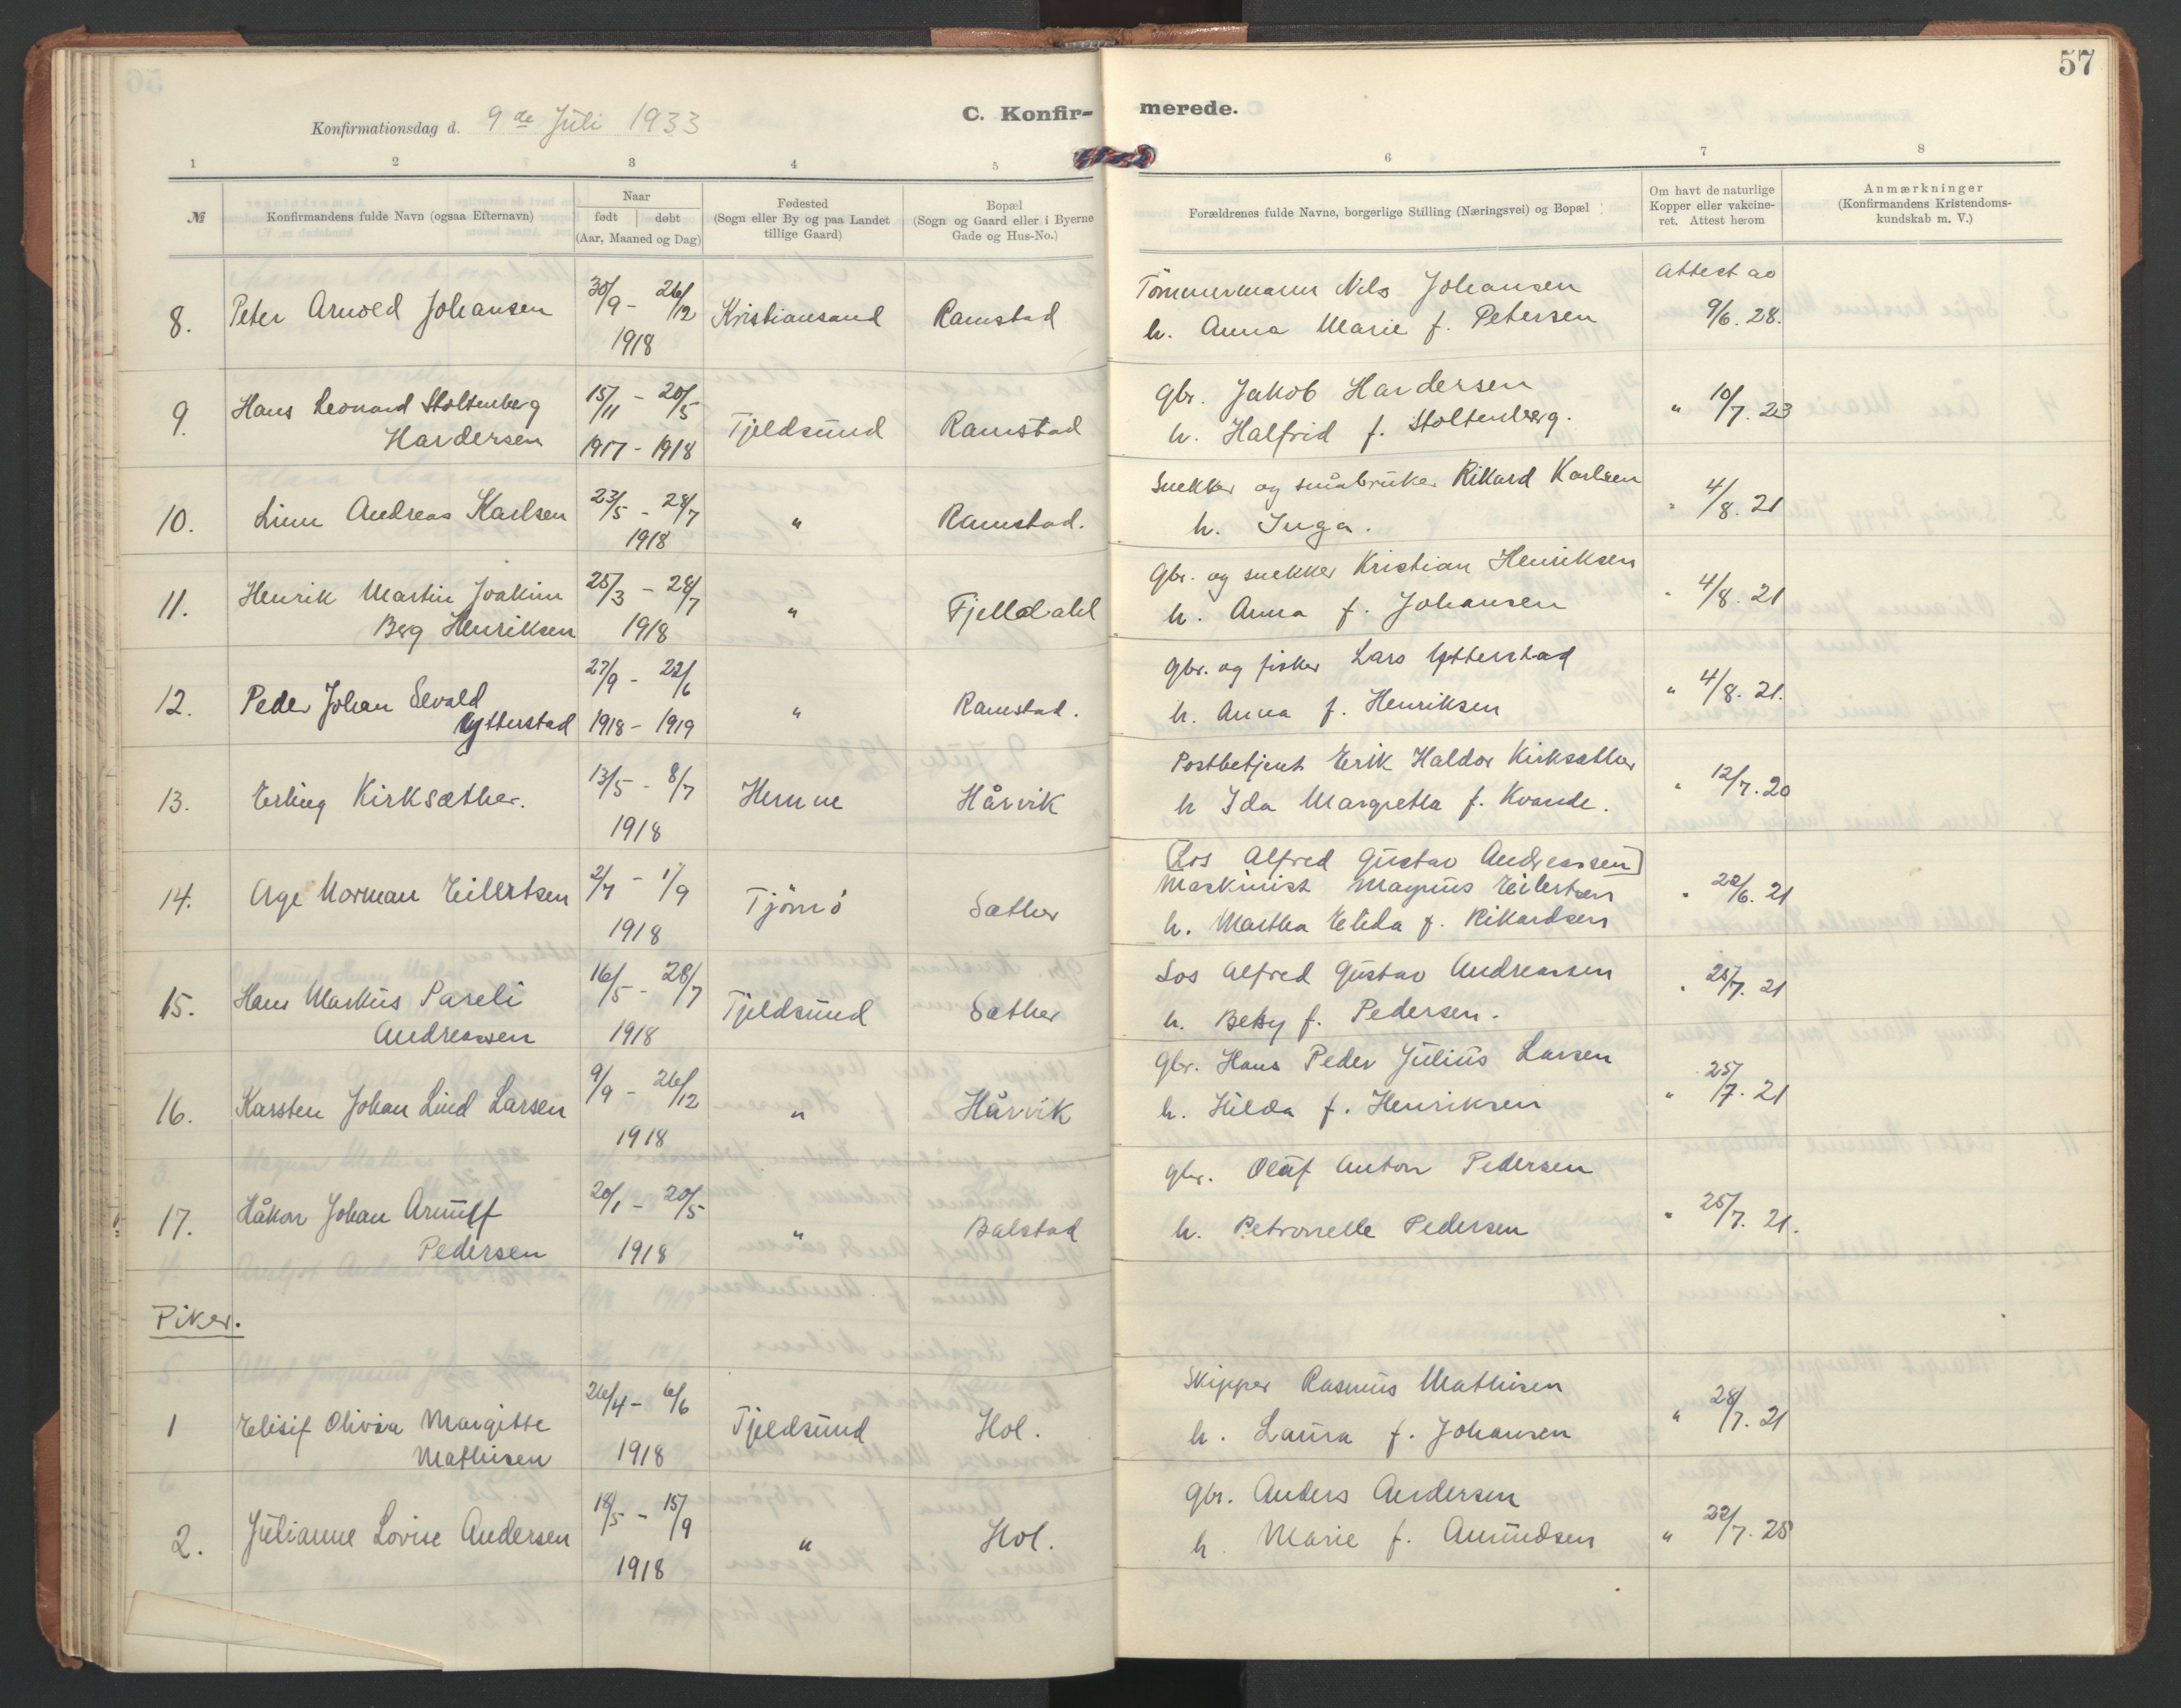 57
Konfirmationsdag d. 9de Juli 1933
C. Konfir- merede.
1 2 3 4 5 6 7 8
№ Konfirmandens fulde Navn (ogsaa Efternavn) Naar født døbt (Aar, Maaned og Dag) Fødested (Sogn eller By og paa Landet tillige Gaard) Bopæl (Sogn og Gaard eller i Byerne Gade og Hus-No.) Forældrenes fulde Navne, borgerlige Stilling (Næringsvei) og Bopæl Om havt de naturlige Kopper eller vakcineret. Attest herom Anmærkninger (Konfirmandens Kristendomskundskab m. V.)
8. Peter Arnold Johansen 30/9 - 26/12 1918 Kristiansand Ramstad Tömmermann Nils Johansen Attest av
h. Anna Marie f. Petersen 9/6. 28.
9. Hans Leonard Stoltenberg 15/11 - 20/5 Tjeldsund Ramstad Gbr. Jakob Hardersen " 10/7. 23
Hardersen 1917 - 1918 h. Halfrid f. Stoltenberg.
10. Linn Andreas Karlsen 23/5 - 28/7 1918 " Ramstad. Snekker og småbruker Rikard Karlsen " 4/8. 21
h. Inga.
11. Henrik Martin Joakim 25/3 - 28/7 " Fjelldahl Gbr. og snekker Kristian Henriksen " 4/8. 21
Berg Henriksen 1918 h. Anna f. Johansen
12. Peder Johan Sevald 27/9 - 22/6 " Ramstad. Gbr. og fisker Lars Ytterstad " 4/8. 21.
Ytterstad 1918 - 1919 h. Anna f. Henriksen
13. Erling Kirksæther. 13/5 - 8/7 1918 Hemne Hårvik Postbetjent Erik Haldor Kirksæther " 12/7. 20
h Ida Margretha f. Kvande.
[Los Alfred Gustav Andreassen]
14. Åge Norman Eilertsen 2/7 - 1/9 1918 Tjömö Sæther Maskinist Magnus Eilertsen " 22/6. 21
h. Martha Elida f. Rikardsen
15. Hans Markus Pareli 16/5 - 28/7 Tjeldsund Sæther Los Alfred Gustav Andreassen " 25/7. 21
Andreassen 1918 h. Betsy f. Pedersen.
16. Karsten Johan Lind Larsen 9/9 - 26/12 1918 " Hårvik Gbr. Hans Peder Julius Larsen " 25/7. 21
h. Hilda f. Henriksen
17. Håkon Johan Arnulf 20/1 - 20/5 " Balstad gbr. Olaf Anton Pedersen " 25/7. 21.
Pedersen 1918 h. Petronelle Pedersen
Piker.
1 Elisif Olivia Margitte 26/4 - 6/6 Tjeldsund Hol. Skipper Rasmus Mathisen " 28/7. 21
Mathisen 1918 h. Laura f. Johansen
2. Julianne Lovise Andersen 18/5 - 15/9 1918 " Hol. Gbr. Anders Andersen " 22/7. 25
h Marie f. Amundsen